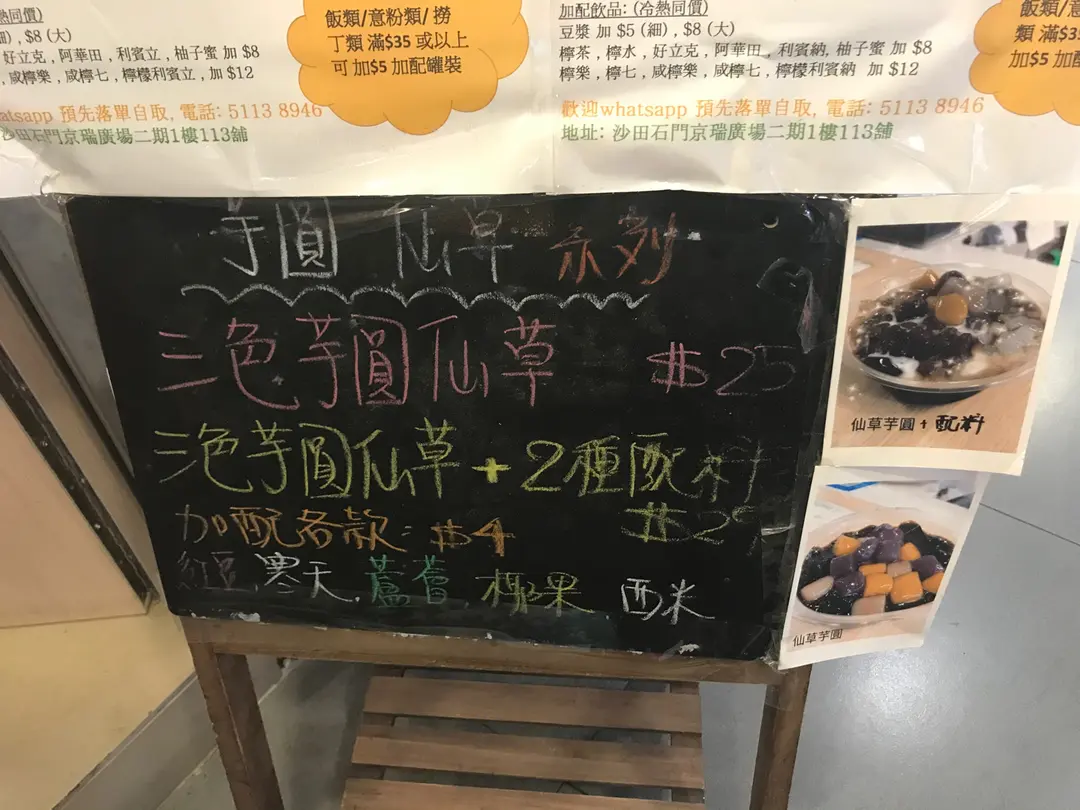 熱同價)
細) , $8 (大)
好立克 , 阿華田 , 利賓立 , 柚子蜜 加 $8
, 咸檸樂 , 咸檸七 , 檸檬利賓立 , 加 $12
atsapp 預先落單自取, 電話: 5113 8946
沙田石門京瑞廣場二期1樓113舖
飯類/意粉類/ 撈
丁類 滿$35 或以上
可 加$5 加配罐裝
加配飲品: (冷熱同價)
豆漿 加 $5 (細) , $8 (大)
檸茶 , 檸水 , 好立克 , 阿華田 , 利賓納, 柚子蜜 加 $8
檸樂 , 檸七 , 咸檸樂 , 咸檸七 , 檸檬利賓納 加 $12
歡迎whatsapp 預先落單自取, 電話: 5113 8946
地址: 沙田石門京瑞廣場二期1樓113舖
飯類/意
類 滿$35
加$5 加配
芋圓 仙草 系列
三色芋圓仙草 $25
三色芋圓仙草 + 2種配料
$29
加配各款: $4
紅豆, 寒天, 蘆薈, 椰果 西米
仙草芋圓 + 配料
仙草芋圓